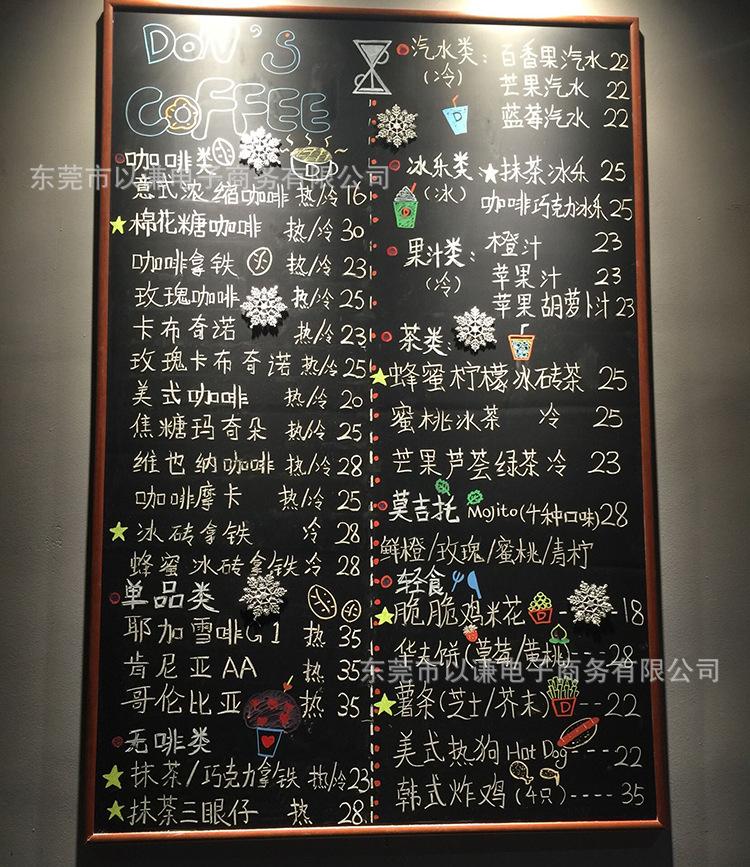 DON'S
COFFEE
咖啡类
意式浓缩咖啡 热/冷 16
棉花糖咖啡 热/冷 30
咖啡拿铁 热/冷 23
玫瑰咖啡 热/冷 25
卡布奇诺 热/冷 23
玫瑰卡布奇诺 热/冷 25
美式咖啡 热/冷 20
焦糖玛奇朵 热/冷 25
维也纳咖啡 热/冷 28
咖啡摩卡 热/冷 25
冰砖拿铁 冷 28
蜂蜜冰砖拿铁 冷 28
单品类
耶加雪啡G1 热 35
肯尼亚AA 热 35
哥伦比亚 热 35
无啡类
抹茶/巧克力拿铁 热/冷 23
抹茶三眼仔 热 28
汽水类: 百香果汽水 22
(冷) 芒果汽水 22
蓝莓汽水 22
D
冰乐类: 抹茶冰乐 25
(冰) 咖啡巧克力冰乐 25
D
果汁类: 橙汁 23
(冷) 苹果汁 23
苹果胡萝卜汁 23
茶类:
蜂蜜柠檬冰砖茶 25
蜜桃冰茶 冷 25
芒果芦荟绿茶 冷 23
莫吉托 Mojito(4种口味) 28
鲜橙/玫瑰/蜜桃/青柠
轻食
脆脆鸡米花 -18
华夫饼(草莓/黄桃)---28
薯条(芝士/芥末) D --22
美式热狗 Hot Dog---22
韩式炸鸡(4只)----35
东莞市以谦电子商务有限公司
东莞市以谦电子商务有限公司